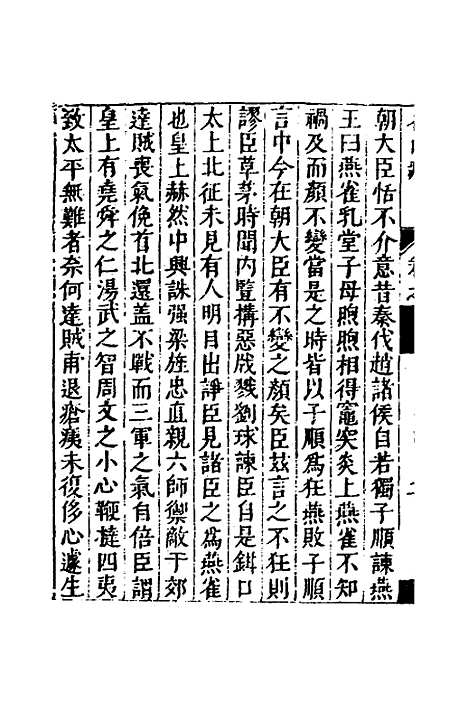 朝大臣恬不介意昔秦伐趙諸侯自若獨子順諫燕
王曰燕雀乳堂子母煦煦相得竈突炎上燕雀不知
禍及而顏不變當是之時皆以子順爲狂燕敗子順
言中今在朝大臣有不變之顏矣臣玆言之不狂則
謬臣草茅時聞內豎搆惡戕戮劉球諫臣自是鉗口
太上北征未見有人明目出諍臣見諸臣之爲燕雀
也皇上赫然中興誅强梁旌忠直親六師禦敵于郊
達賊喪氣俛首北還盖不戰而三軍之氣自倍臣謂
皇上有堯舜之仁湯武之智周文之小心鞭撻四夷
致太平無難者奈何達賊甫退瘡痍未復侈心遽生